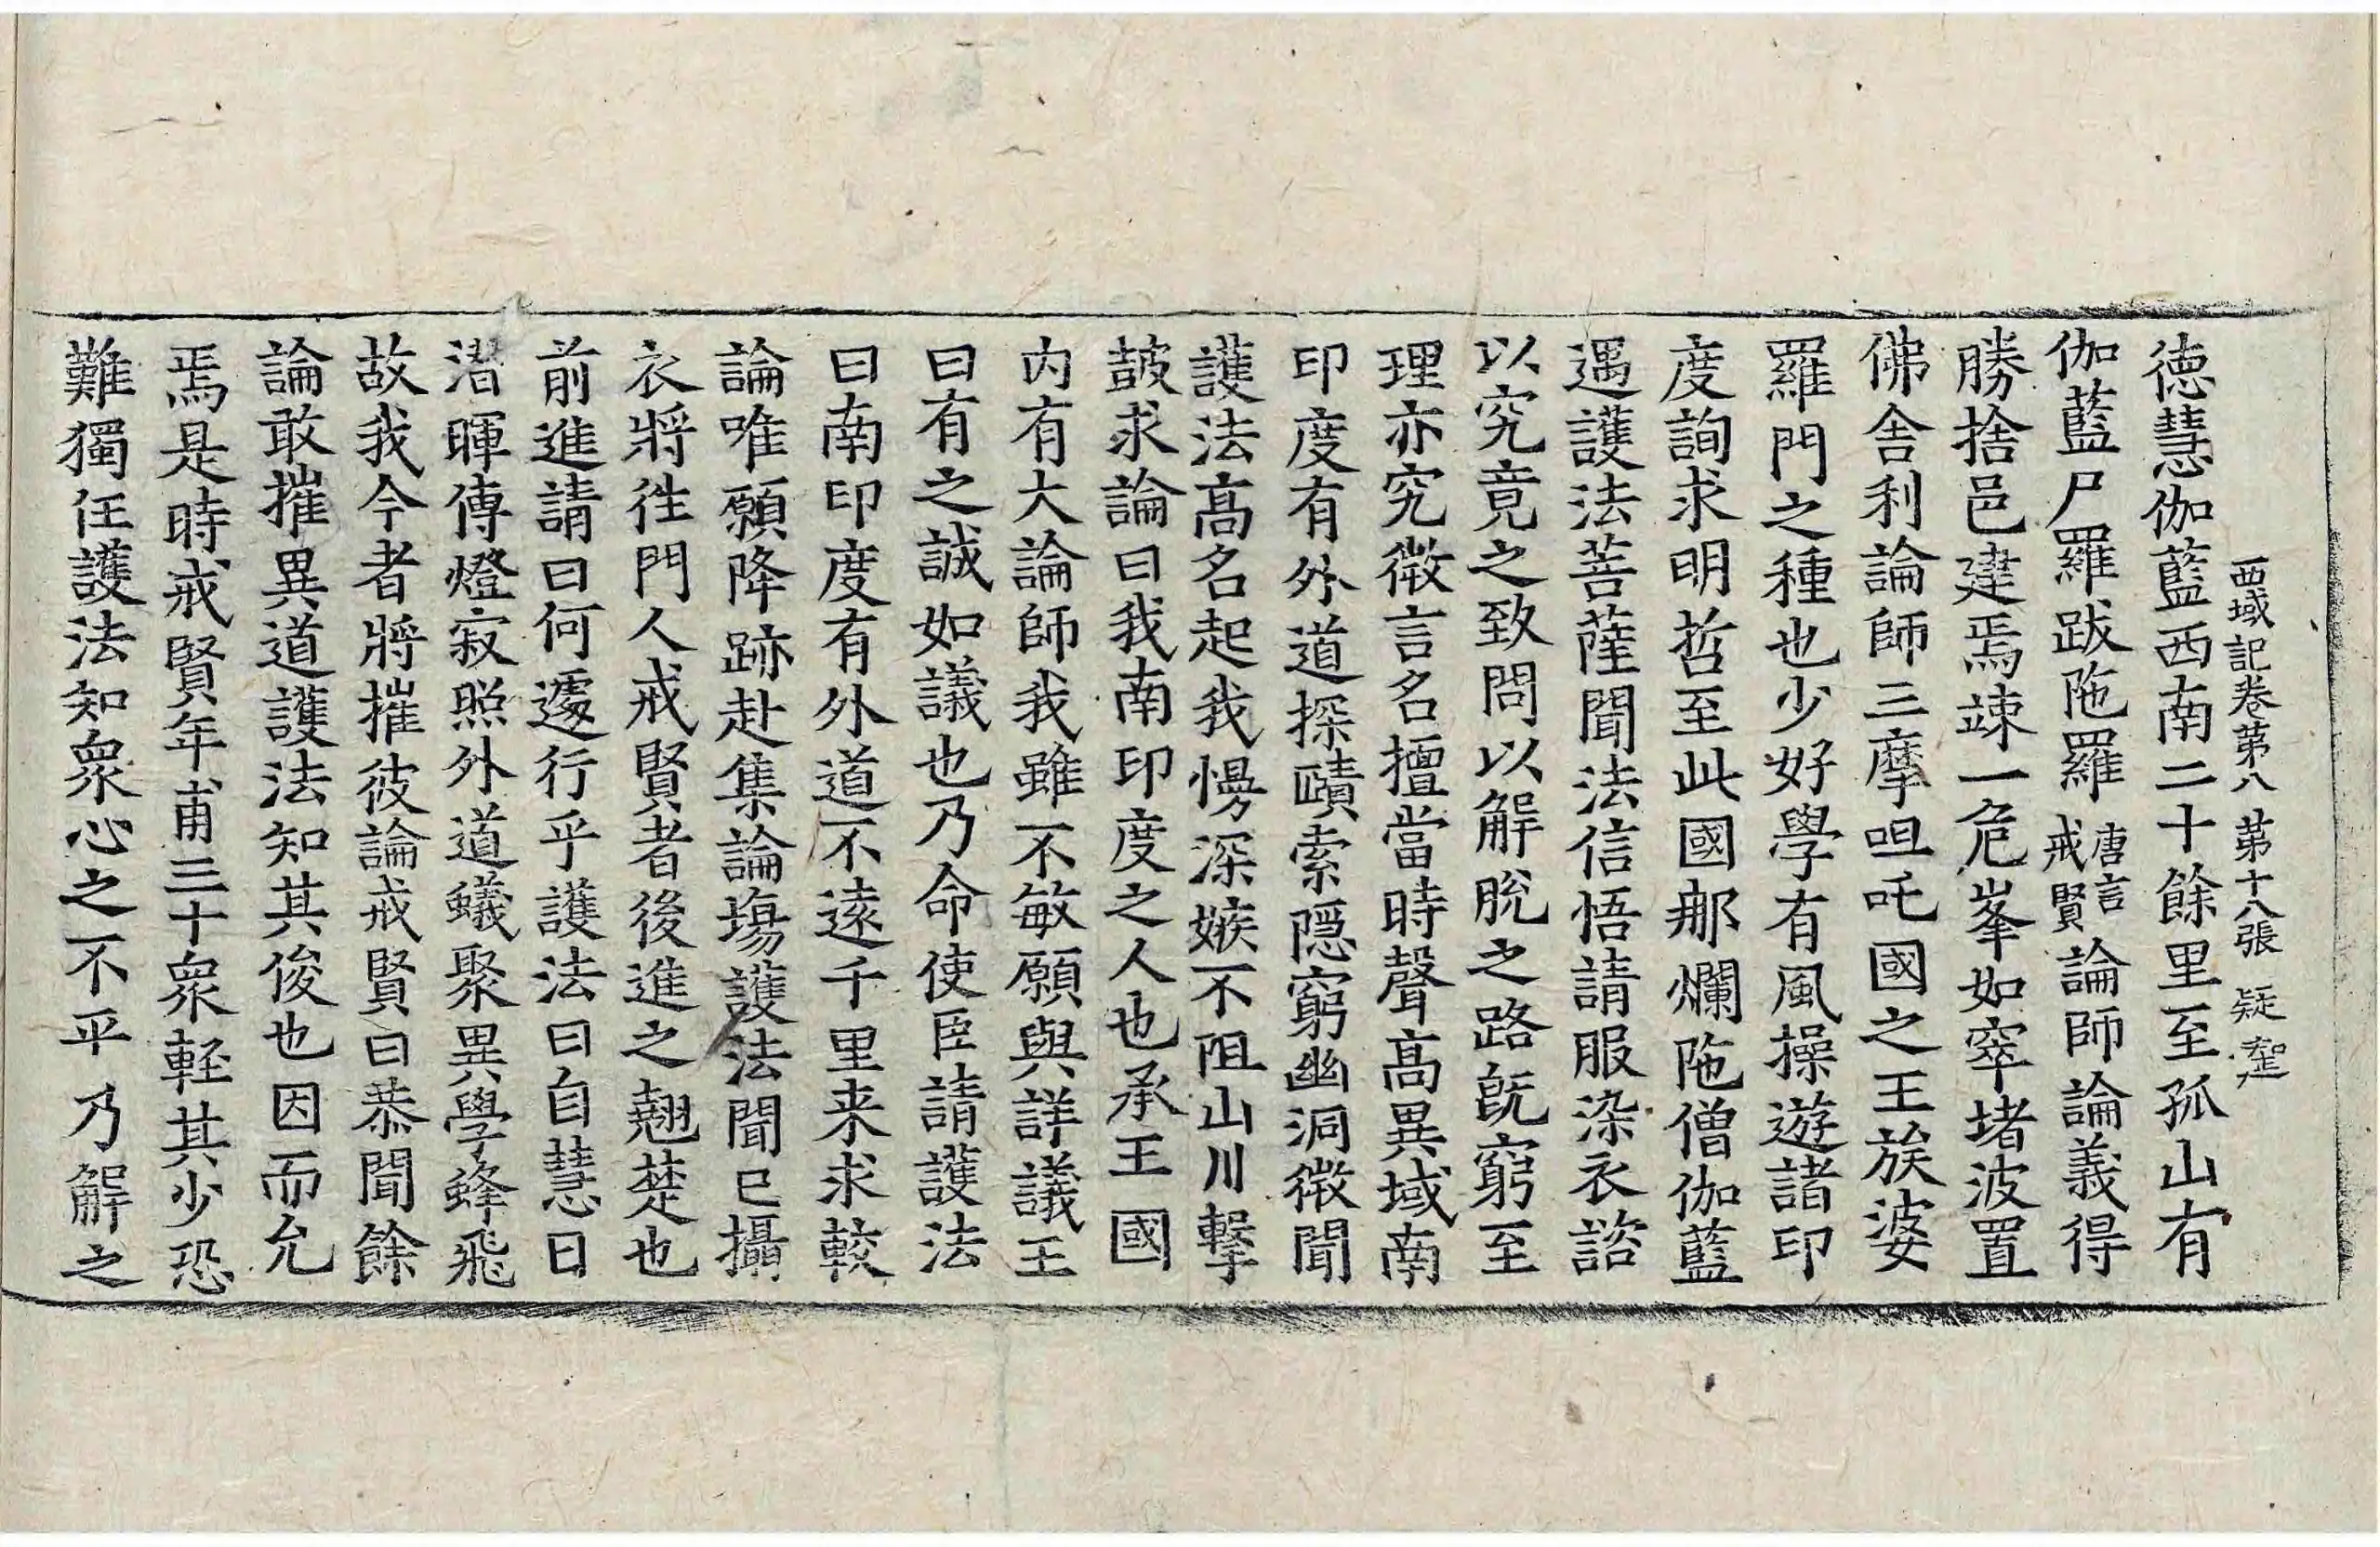 西域記卷第八 第十八張 疑
德慧伽藍西南二十餘里至孤山有
伽藍尸羅跋陁羅唐言戒賢論師論義得
勝捨邑建焉竦一危峯如窣堵波置
佛舍利論師三摩呾吒國之王族婆
羅門之種也少好學有風操遊諸印
度詢求明哲至此國那爛陁僧伽藍
遇護法菩薩聞法信悟請服染衣諮
以究竟之致問以解脫之路旣窮至
理亦究微言名擅當時聲高異域南
印度有外道探賾索隱窮幽洞微聞
護法高名起我慢深嫉不阻山川擊
鼓求論曰我南印度之人也承王國
内有大論師我雖不敏願與詳議王
曰有之誠如議也乃命使臣請護法
曰南印度有外道不遠千里来求較
論唯願降跡赴集論場護法聞已攝
衣將往門人戒賢者後進之翹楚也
前進請曰何遽行乎護法曰自慧日
潛暉傳燈寂照外道蟻聚異學蜂飛
故我今者將摧彼論戒賢曰恭聞餘
論敢摧異道護法知其俊也因而允
焉是時戒賢年甫三十衆輕其少恐
難獨任護法知衆心之不平乃解之